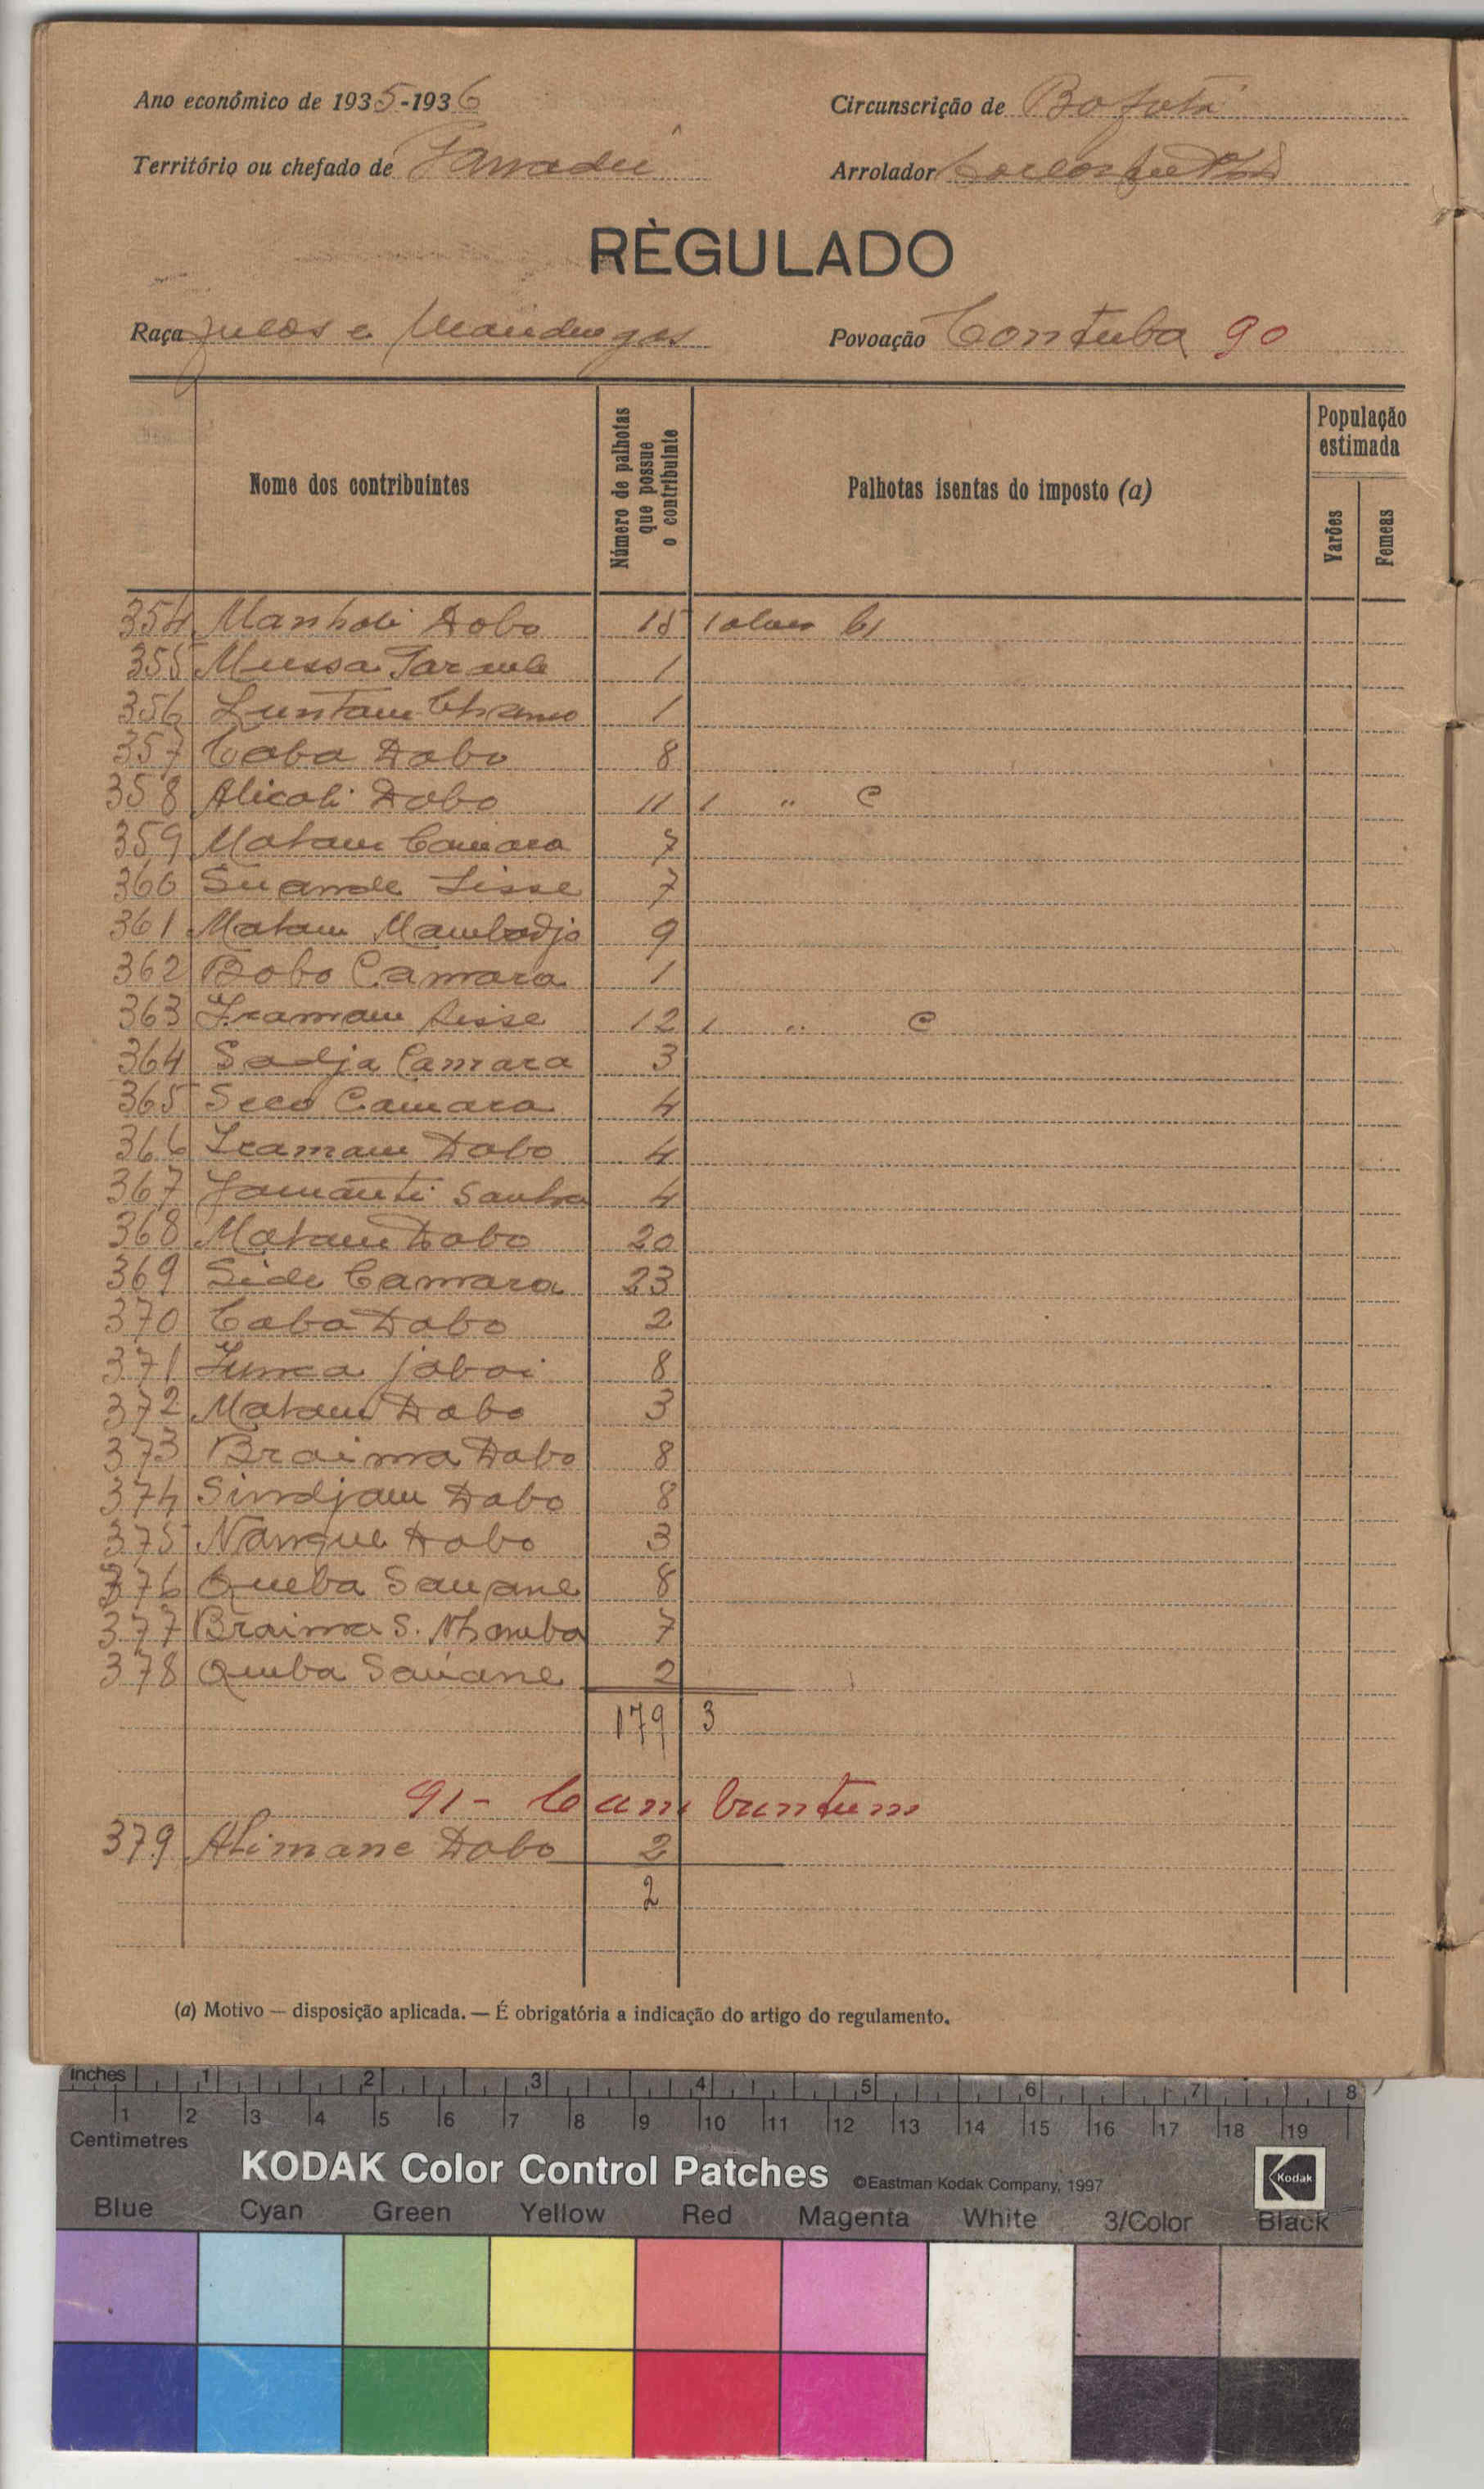 Ano económico de 1935-1936
Circunscrição de Bafatá
Território ou chefado de
Arrolador
RÈGULADO
Raça Fulas e Mandingas
Povoação Contuba 90
Nome dos contribuintes
Número de palhotas que possue o contribuinte
Palhotas isentas do imposto (a)
População estimada
Varões
Femeas
354 Dobo 15 1 b)
355 Mussa 1
356 1
357 Caba Dabo 8
358 Alicali Dobo 11 1 " C
359 Malam Camara 7
360 Suande Sisse 7
361 Malam Mambodjo 9
362 Bobo Camara 1
363 Sisse 12 1 " C
364 Sadja Camara 3
365 Seco Camara 4
366 Dabo 4
367 4
368 Malam Dabo 20
369 Side Camara 23
370 Caba Dabo 2
371 jabai 8
372 Malam Dabo 3
373 Braima Dabo 8
374 Sindjam Dabo 8
375 Nanque Dabo 3
376 Queba Sauane 8
377 Braima S. 7
378 Queba Sauane 2
179 3
91 - Cambuntum
379 Alimane Dobo 2
2
(a) Motivo — disposição aplicada. — É obrigatória a indicação do artigo do regulamento.
Inches 1 2 3 4 5 6 7 8
1 2 3 4 5 6 7 8 9 10 11 12 13 14 15 16 17 18 19
Centimetres
KODAK Color Control Patches ©Eastman Kodak Company, 1997 Kodak
Blue Cyan Green Yellow Red Magenta White 3/Color Black